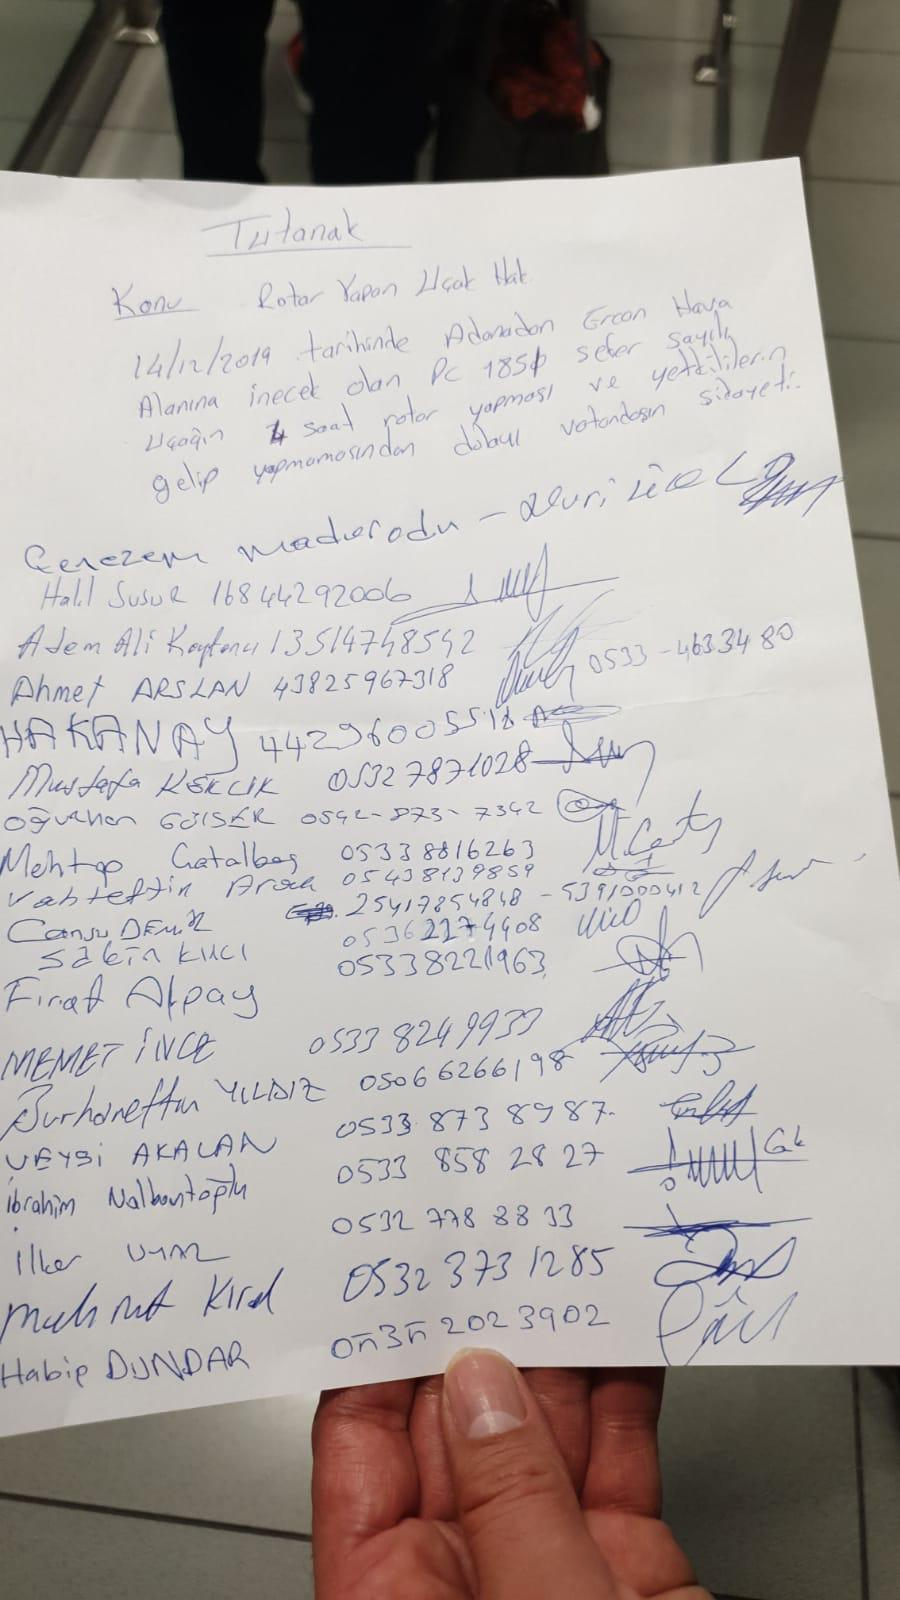 Tutanak
Konu Rotar Yapan Uçak Hak.
14/12/2019 tarihinde Adanadan Ercan Hava
Alanına inecek olan PC 1850 sefer sayılı
Uçağın 4 saat rotar yapması ve yetkililerin
gelip yapmamasından dolayı vatandaşın şikayeti.
Halil SUSUR 16844292006
Adem Ali 13514748592
Ahmet ARSLAN 43825967318 0533-4633480
HAKAN AY 44296005518
Mustafa KEKLİK 05327871028
Oğuzhan GÜLSER 0542-873-7342
Mehtap Çatalbaş 05338816263
Vahtettin 05438139859
Cansu DEMİR 25417854848 - 5391000412
Sakin KILICI 05362274408
Fırat Alpay 05338221963
MEMET İNCE 05338249933
Burhanettin YILDIZ 05066266198
VEYSİ AKALAN 0533 873 8987
İbrahim Nalbantoğlu 0533 858 28 27
İlker UYAR 0532 778 88 33
Mahmut Kıral 0532 373 1285
Habip DUNDAR 0535 2023902